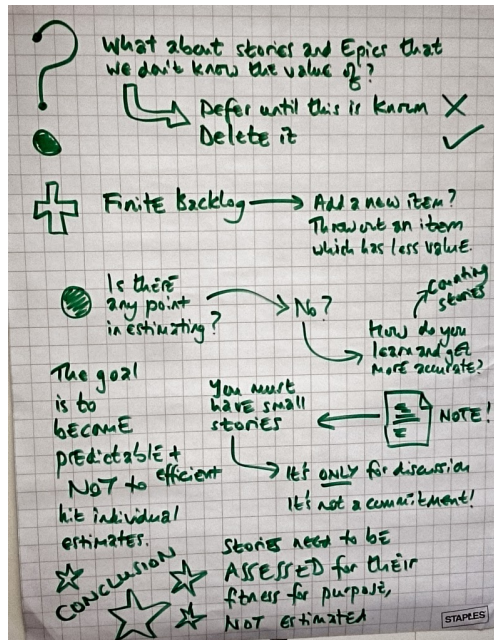 ?
What about stories and Epics that
we don't know the value of?
Defer until this is known X
Delete it ✓
+ Finite Backlog → Add a new item?
Throw out an item
which has less value.
Is there
any point
in estimating?
No?
Counting
stories
How do you
learn and get
more accurate?
The goal
is to
become
predictable +
efficient
NOT to
hit individual
estimates.
You must
have small
stories
NOTE!
It's ONLY for discussion
It's not a commitment!
CONCLUSION
Stories need to be
ASSESSED for their
fitness for purpose,
NOT estimated
STAPLES